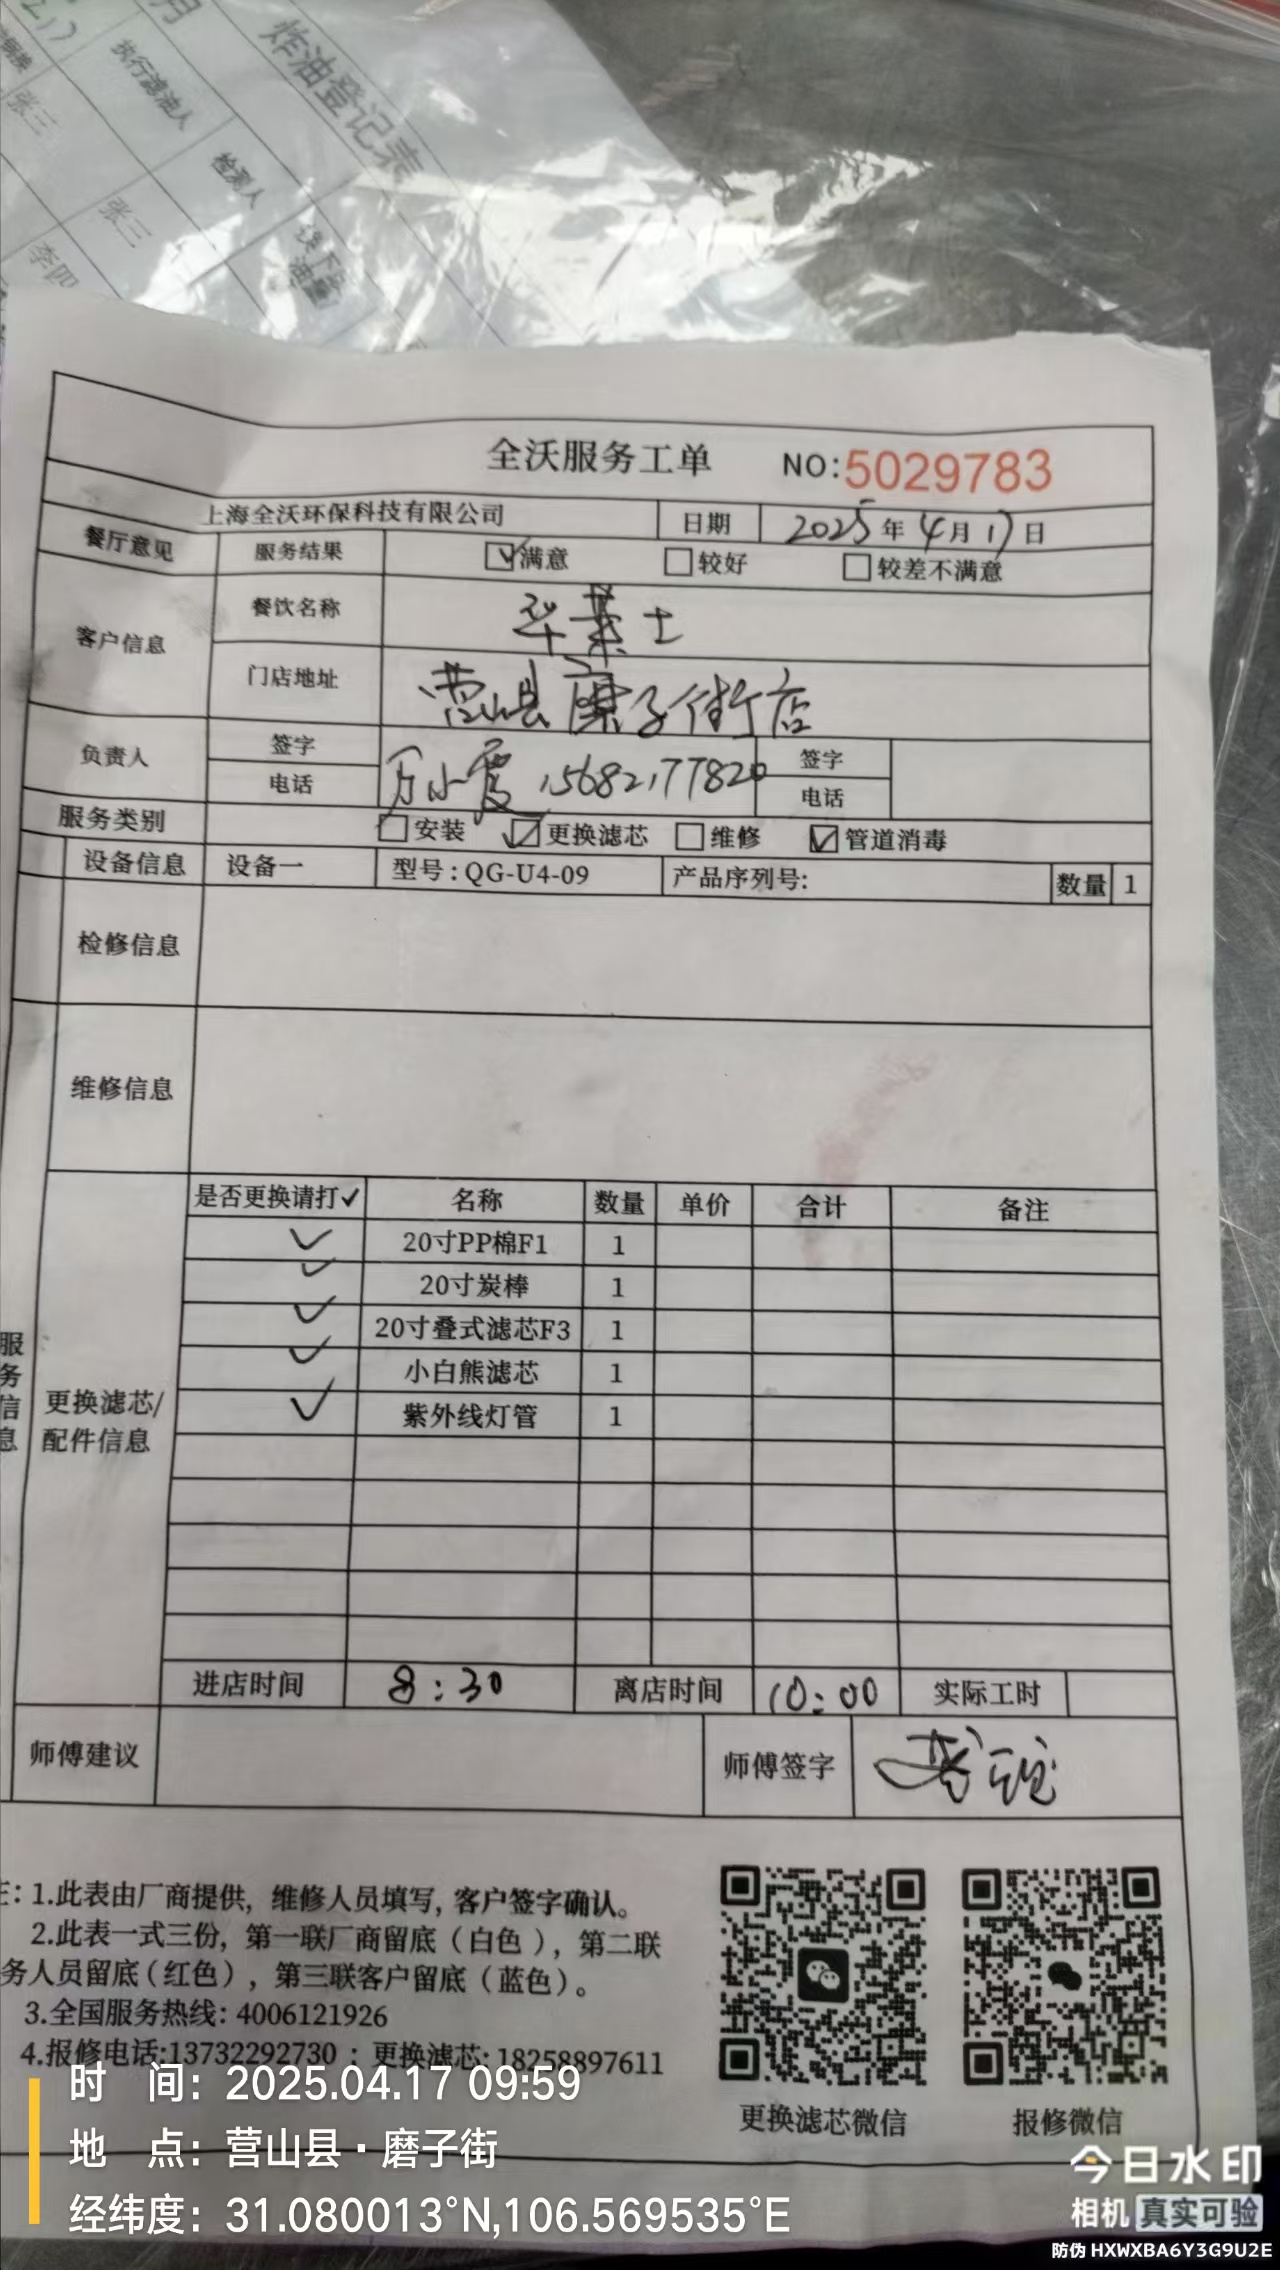 月
炸油登记表
执行滤油人
检测人
张三
张三
李四
全沃服务工单 NO:5029783
上海全沃环保科技有限公司 日期 2025年4月17日
餐厅意见 服务结果 满意 较好 较差不满意
客户信息 餐饮名称 华莱士
门店地址 营山县磨子街店
负责人 签字 万小霞 15682177820 签字
电话 电话
服务类别 安装 更换滤芯 维修 管道消毒
设备信息 设备一 型号:QG-U4-09 产品序列号: 数量 1
检修信息
维修信息
服务信息
更换滤芯/配件信息
是否更换请打✓ 名称 数量 单价 合计 备注
✓ 20寸PP棉F1 1
✓ 20寸炭棒 1
✓ 20寸叠式滤芯F3 1
✓ 小白熊滤芯 1
✓ 紫外线灯管 1
进店时间 8:30 离店时间 10:00 实际工时
师傅建议 师傅签字
1.此表由厂商提供, 维修人员填写, 客户签字确认。
2.此表一式三份, 第一联厂商留底（白色）, 第二联
务人员留底（红色）, 第三联客户留底（蓝色）。
3.全国服务热线: 4006121926
4.报修电话:13732292730 ; 更换滤芯: 18258897611
更换滤芯微信 报修微信
时 间: 2025.04.17 09:59
地 点: 营山县·磨子街
经纬度: 31.080013°N,106.569535°E
今日水印
相机 真实可验
防伪 HXWXBA6Y3G9U2E